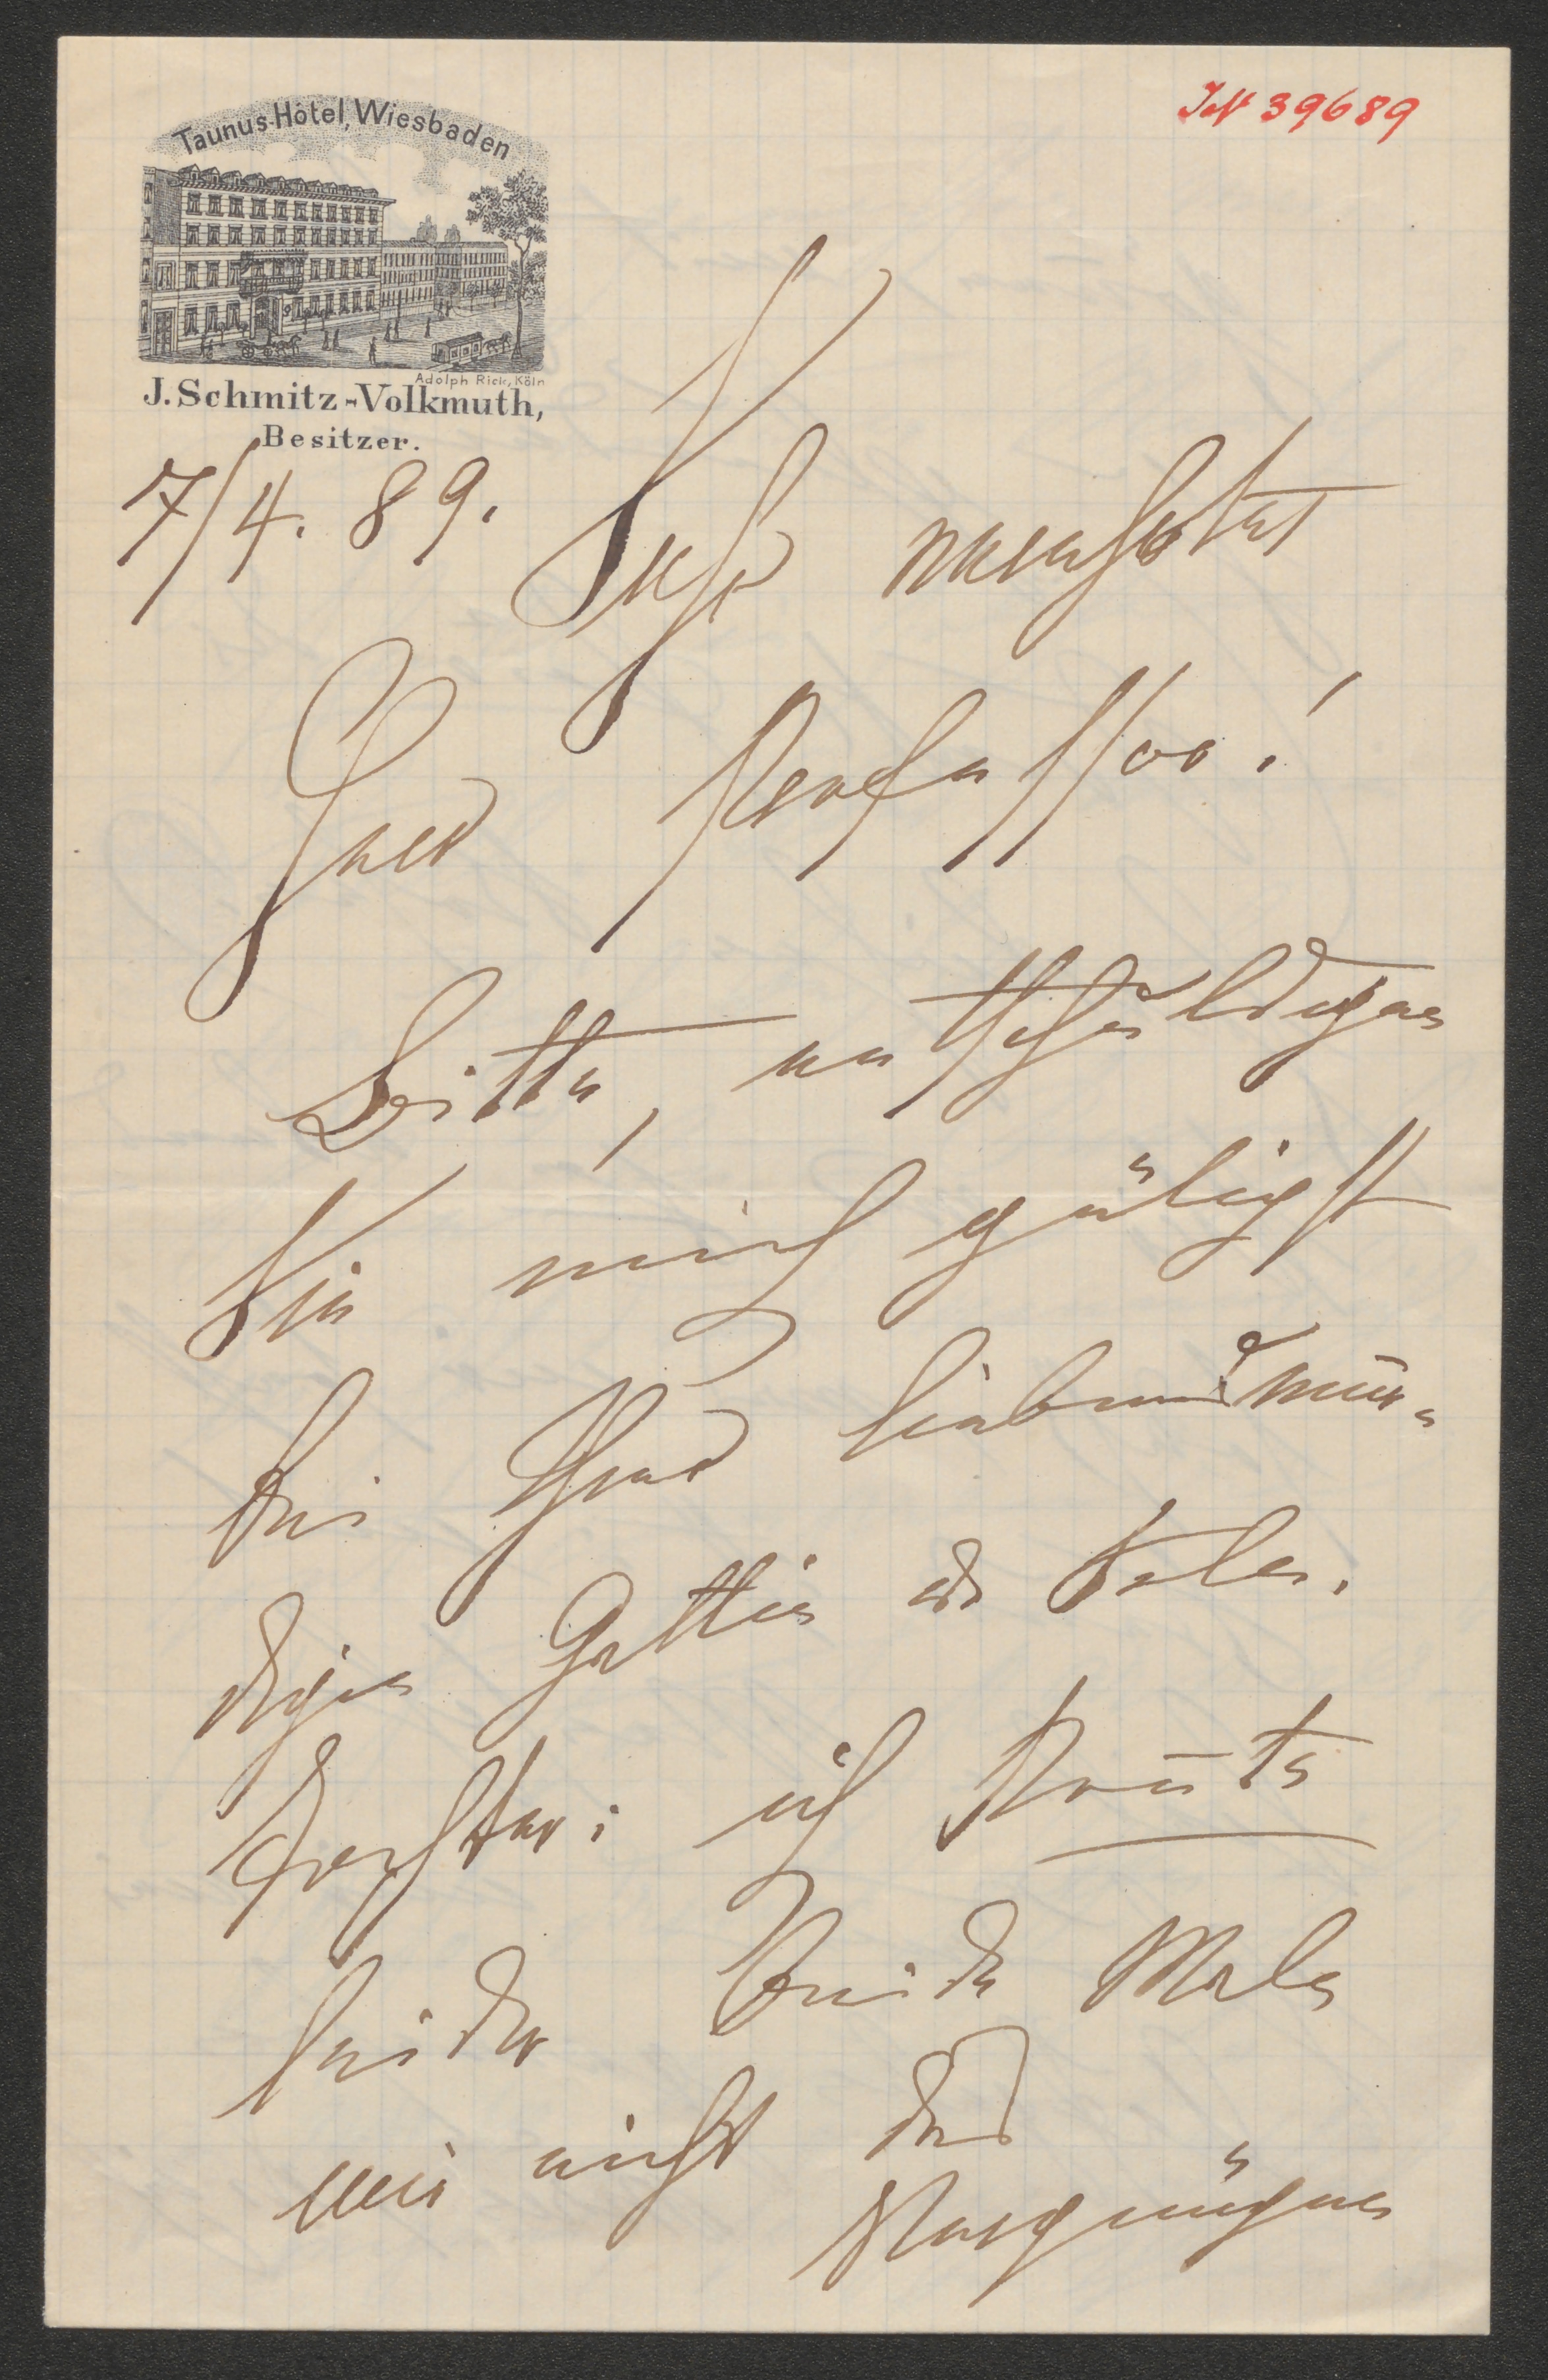 JN 39689
Taunus-Hôtel, Wiesbaden
Adolph Rick, Köln
J. Schmitz-Volkmuth,
Besitzer.
7/4. 89.
Sehr verehrter
Herr Professor!
Bitte, entschuldigen
Sie mich gütigst
bei Ihrer liebenswür-
digen Gattin
Tochter: ich konnte
leider beide Male
mir nicht das
Vergnügen